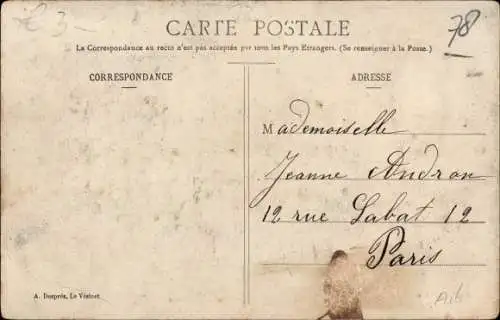 € 3-
78
CARTE POSTALE
La Correspondance au recto n'est pas acceptée par tous les Pays Etrangers. (Se renseigner à la Poste.)
CORRESPONDANCE
ADRESSE
Mademoiselle
Jeanne Andron
12 rue Labat 12
Paris
A. Desprès, Le Vésinet